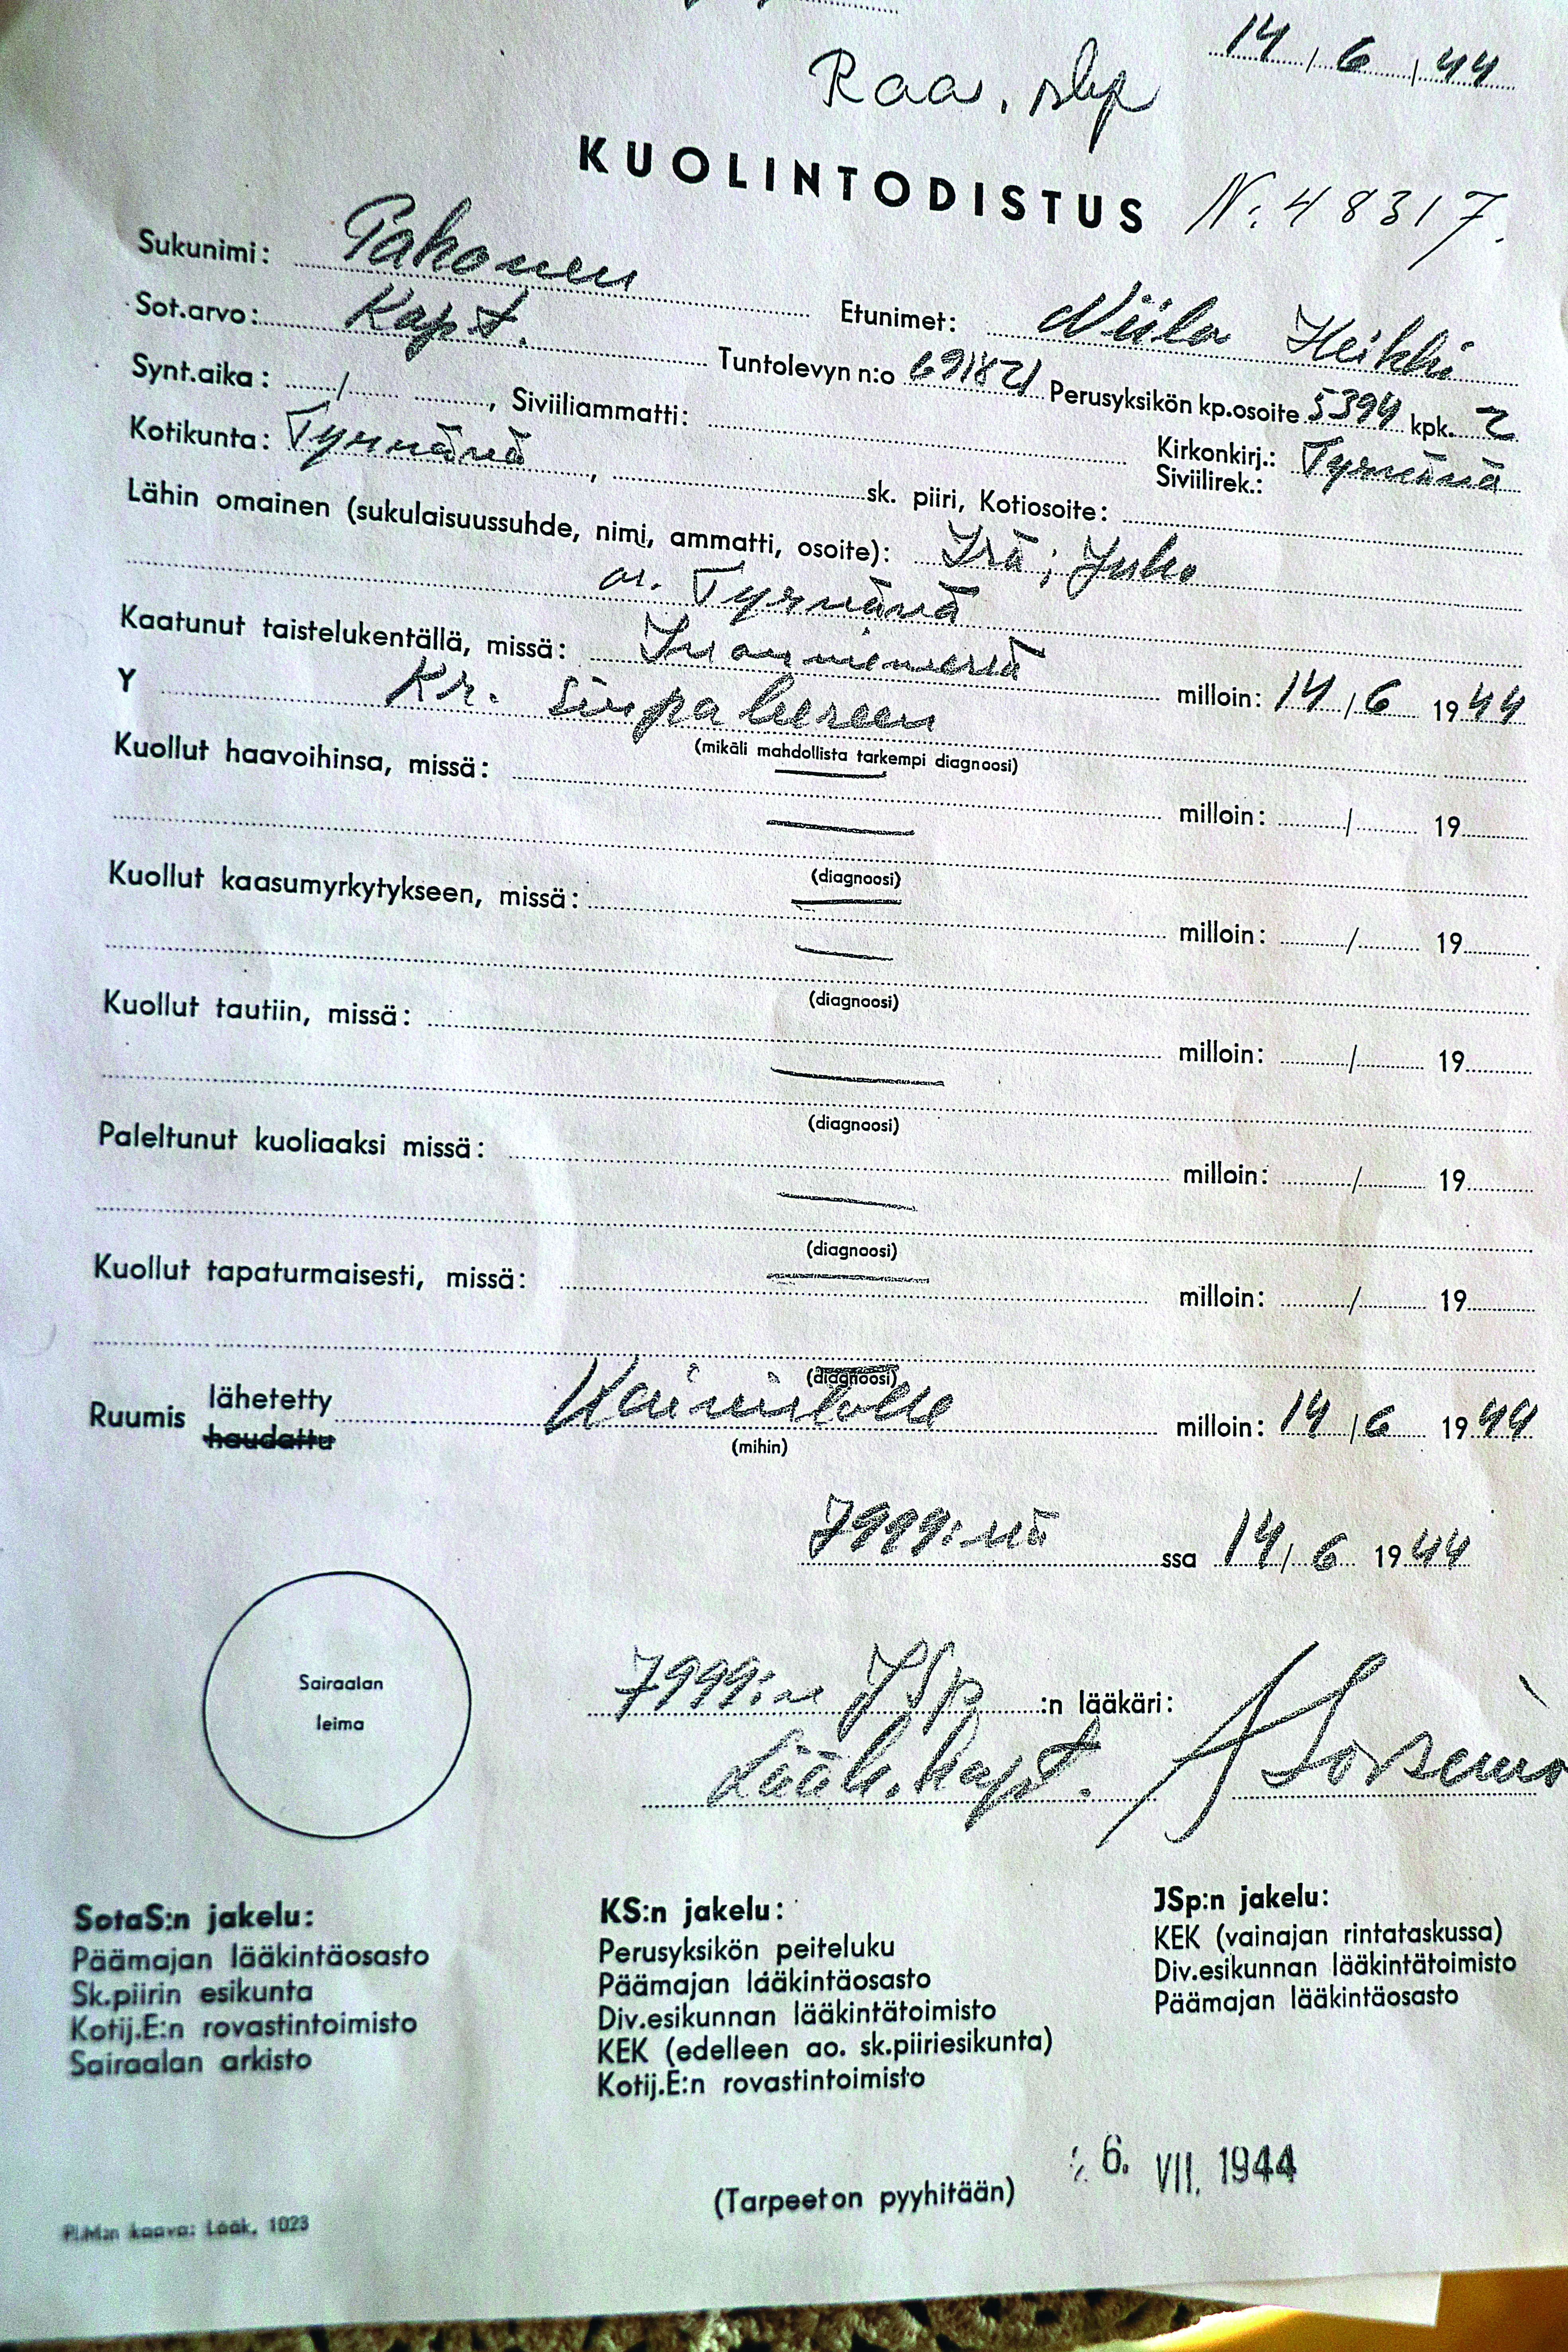 14 / 6 / 44
Raa, skp
KUOLINTODISTUS N: 48317.
Sukunimi: Pahonen Etunimet: Niilo Heikki
Sot.arvo: Kapt. Tuntolevyn n:o 691821 Perusyksikön kp.osoite 5394 kpk. 2
Synt.aika: / , Siviiliammatti: Kirkonkirj.: Tyrnävä
Siviilirek.:
Kotikunta: Tyrnävä , sk. piiri, Kotiosoite:
Lähin omainen (sukulaisuussuhde, nimi, ammatti, osoite): Isä; Juho
os. Tyrnävä
Kaatunut taistelukentällä, missä: milloin: 14 / 6 1944
Y Kr.
(mikäli mahdollista tarkempi diagnoosi)
Kuollut haavoihinsa, missä: milloin: / 19
(diagnoosi)
Kuollut kaasumyrkytykseen, missä: milloin: / 19
(diagnoosi)
Kuollut tautiin, missä: milloin: / 19
(diagnoosi)
Paleltunut kuoliaaksi missä: milloin: / 19
(diagnoosi)
Kuollut tapaturmaisesti, missä: milloin: / 19
(diagnoosi)
Ruumis lähetetty Kaimistölle milloin: 14 / 6 1944
haudattu
(mihin)
7999:nä ssa 14 / 6 1944
Sairaalan
leima
7999:n JSp :n lääkäri:
Lääk.kapt. A Sorsemo
SotaS:n jakelu:
Päämajan lääkintäosasto
Sk.piirin esikunta
Kotij.E:n rovastintoimisto
Sairaalan arkisto
KS:n jakelu:
Perusyksikön peiteluku
Päämajan lääkintäosasto
Div.esikunnan lääkintätoimisto
KEK (edelleen ao. sk.piiriesikunta)
Kotij.E:n rovastintoimisto
JSp:n jakelu:
KEK (vainajan rintataskussa)
Div.esikunnan lääkintätoimisto
Päämajan lääkintäosasto
6. VII. 1944
(Tarpeeton pyyhitään)
Pl.M:n kaava: Lääk. 1023